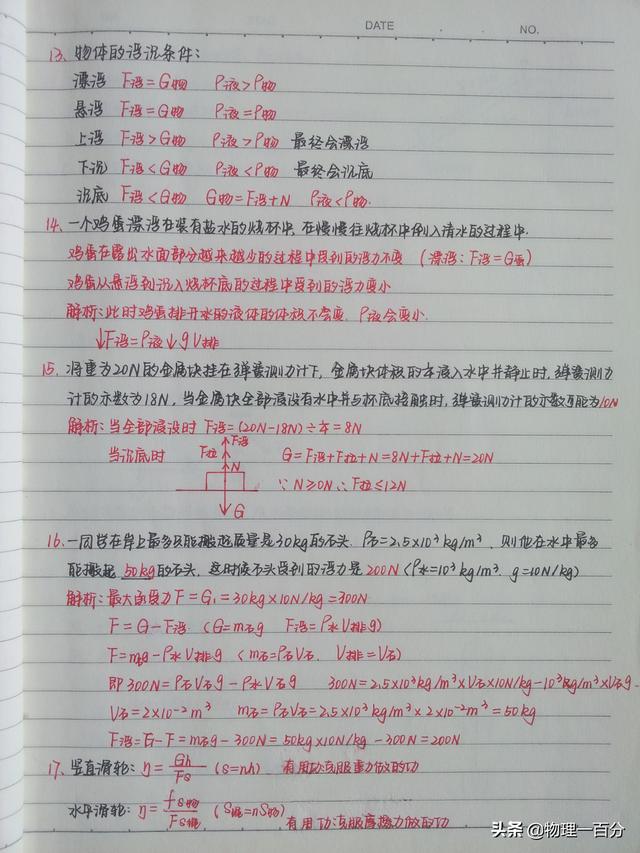 DATE
NO.
13、物体的浮沉条件：
漂浮 F浮=G物 ρ液>ρ物
悬浮 F浮=G物 ρ液=ρ物
上浮 F浮>G物 ρ液>ρ物 最终会漂浮
下沉 F浮<G物 ρ液<ρ物 最终会沉底
沉底 F浮<G物 G物=F浮+N ρ液<ρ物.
14、一个鸡蛋漂浮在装有盐水的烧杯中，在慢慢往烧杯中倒入清水的过程中.
鸡蛋在露出水面部分越来越少的过程中受到的浮力不变 (漂浮：F浮=G蛋)
鸡蛋从悬浮到沉入烧杯底的过程中受到的浮力变小
解析：此时鸡蛋排开水的液体的体积不会变，ρ液会变小.
↓F浮=ρ液↓gV排
15、将重为20N的金属块挂在弹簧测力计下，金属块体积的 浸入水中并静止时，弹簧测力
计的示数为18N，当金属块全部浸没有水中并与杯底接触时，弹簧测力计的示数可能为10N
解析：当全部浸没时 F浮=(20N-18N)÷ =8N
当沉底时 G=F浮+F拉+N=8N+F拉+N=20N
∵N≥0N ∴F拉≤12N
F浮
F拉
N
G
16、一同学在岸上最多只能搬起质量是30kg的石头，ρ石=2.5×10³kg/m³，则他在水中最多
能搬起 50kg的石头，这时候石头受到的浮力是 200N (ρ水=10³kg/m³，g=10N/kg)
解析：最大承受力 F=G₁=30kg×10N/kg=300N
F=G-F浮 (G=m石g F浮=ρ水V排g)
F=m石g-ρ水V排g (m石=ρ石V石，V排=V石)
即300N=ρ石V石g-ρ水V石g 300N=2.5×10³kg/m³×V石×10N/kg-10³kg/m³×V石g-
V石=2×10⁻²m³ m石=ρ石V石=2.5×10³kg/m³×2×10⁻²m³=50kg
F浮=G-F=m石g-300N=50kg×10N/kg-300N=200N
17、竖直滑轮：η=Gh/Fs (s=nh) 有用功克服重力做的功
水平滑轮：η=fs物/Fs绳 (s绳=ns物) 有用功克服摩擦力做的功
头条 @物理一百分